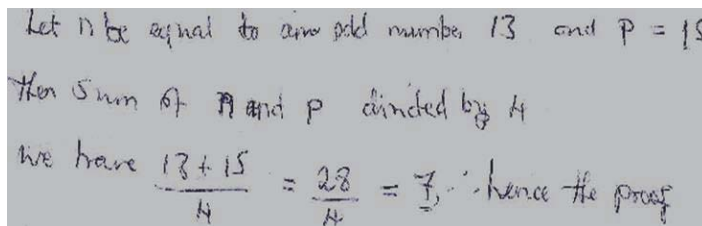 Let n be equal to an odd number 13 and P = 15
then Sum of n and p divided by 4
we have 13 + 15 / 4 = 28 / 4 = 7, ∴ hence the proof